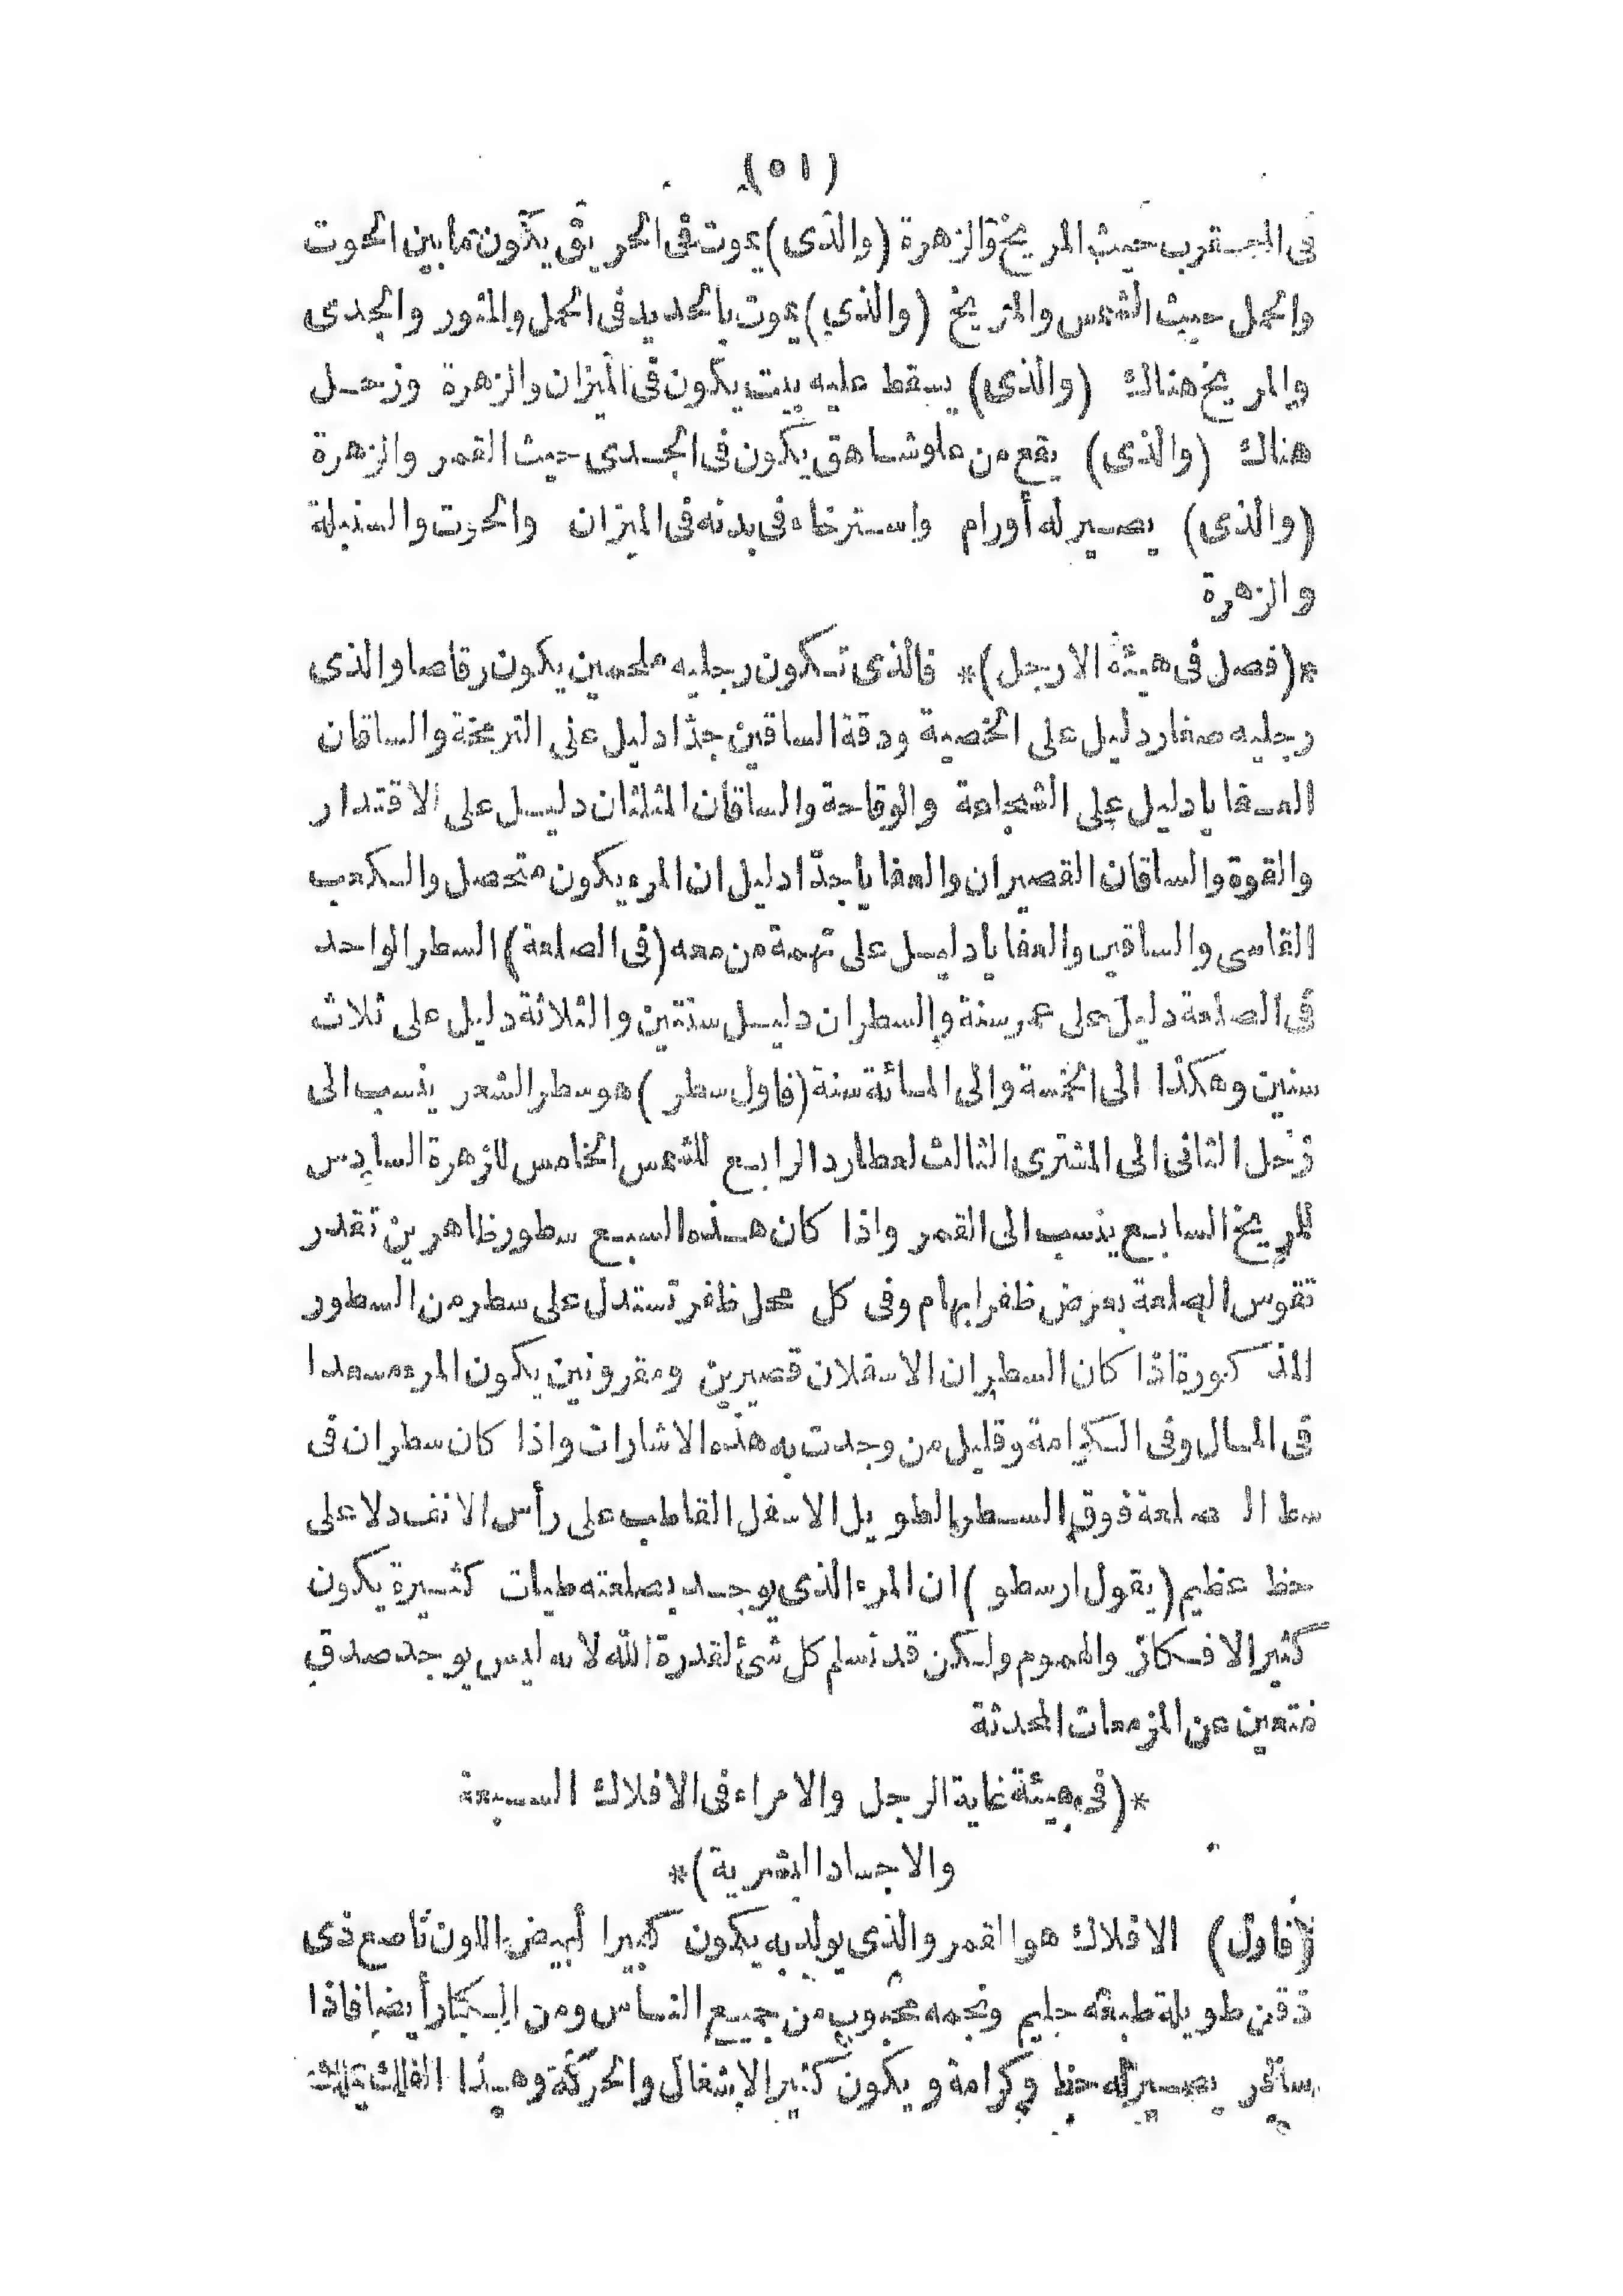 (٥١)
فى العـقرب حيث المريخ والزهرة (والذى) يموت فى الحريق يكون ما بين الحوت
والحمل حيث الشمس والمريخ (والذي) يموت بالحديد فى الحمل والثور والجدى
والمريخ هناك (والذى) يسقط عليه بيت يكون فى الميزان والزهرة وزحـل
هناك (والذى) يقع من علو شاهق يكون فى الجـدى حيث القمر والزهرة
(والذى) يصـير له أورام واسـترخاء فى بدنه فى الميزان والحوت والسنبلة
والزهرة
*(فصل فى هيئة الارجل)* فالذى تـكون رجليه ملحمين يكون رقاصا والذى
رجليه صغار دليل على الخصية ودقة الساقين جدّا دليل على والساقان
العـفايا دليل على الشجاعة والوقاحة والساقان المثلثان دليـل على الاقتدار
والقوة والساقان القصيران والعفايا جدّا دليل ان المرء يكون متحصل والـكعب
القاسى والساقين والعفايا دليـل على تهمة من معه (فى الصلعة) السطر الواحد
فى الصلعة دليل على عمر سنة والسطران دليـل سنتين والثلاثة دليل على ثلاث
سنين وهكذا الى الخمسة والى المـائة سنة (فاول سطر) هو سطر الشعر ينسب الى
زحل الثانى الى المشترى الثالث لعطارد الرابـع للشمس الخامس للزهرة السادس
للمريخ السابـع ينسب الى القمر واذا كان هـذه السبـع سطور ظاهرين تقدر
تقوس الصلعة بعرض ظفر ابهام وفى كل محل ظفر تستدل على سطر من السطور
المذكورة اذا كان السطران الاسفلان قصيرين ومقرونين يكون المرء مسعدا
فى المـال وفى الـكرامة وقليل من وجدت به هذه الاشارات واذا كان سطران فى
سط الـصلعة فوق السـطر الطويل الاسفل القاطب على رأس الانف دلا على
حظ عظيم (يقول ارسطو) ان المرء الذى يوجـد بصلعته طيات كثـيرة يكون
كثير الافـكار والهموم ولـكن قد نسلم كل شئ لقدرة الله لانه ليس يوجد صدق
متعين عن المزمعات المحدثة
*(فى هيئة غاية الرجل والامراء فى الافلاك السـبعة
والاجساد البشرية)*
(فاول) الافلاك هو القمر والذى يولد به يكون كبيرا أبيض اللون ناصع ذى
ذقن طويلة طبعه حليم ونجمه محبوب من جميـع الناس ومن الـكبار أيضا فاذا
سافر يصـير له حظ وكرامة ويكون كثير الاشغال والحركة وهـذا الفلك